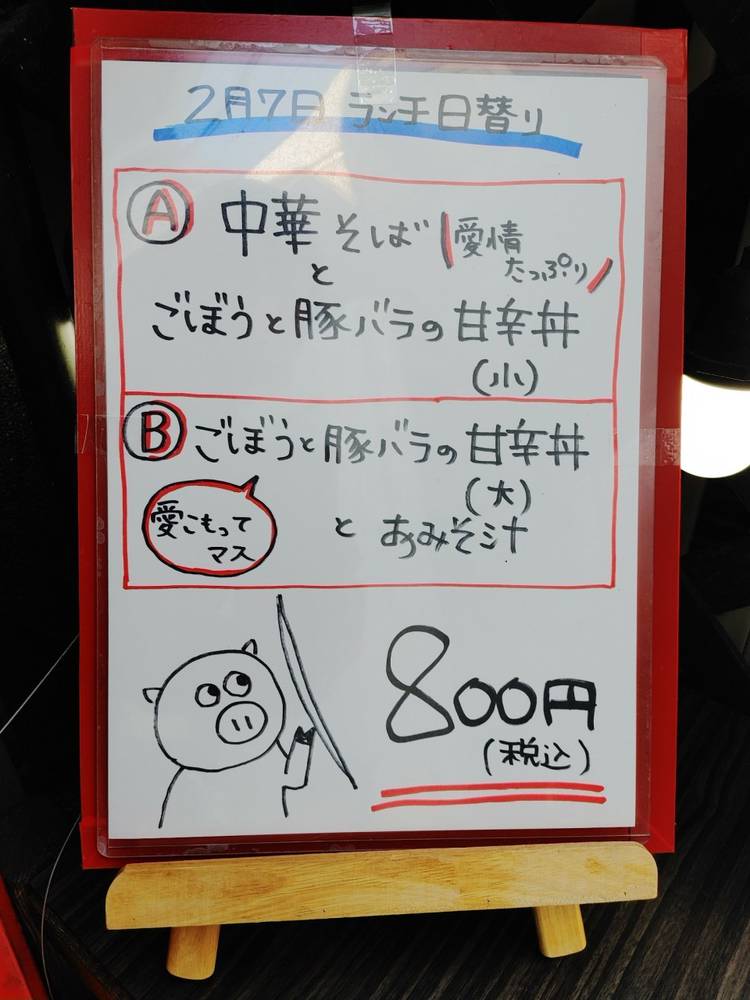 2月7日 ランチ日替り
A 中華そば 愛情
たっぷり
と
ごぼうと豚バラの甘辛丼
(小)
B ごぼうと豚バラの甘辛丼
(大)
と あみそ汁
愛こもって
マス
800円
(税込)